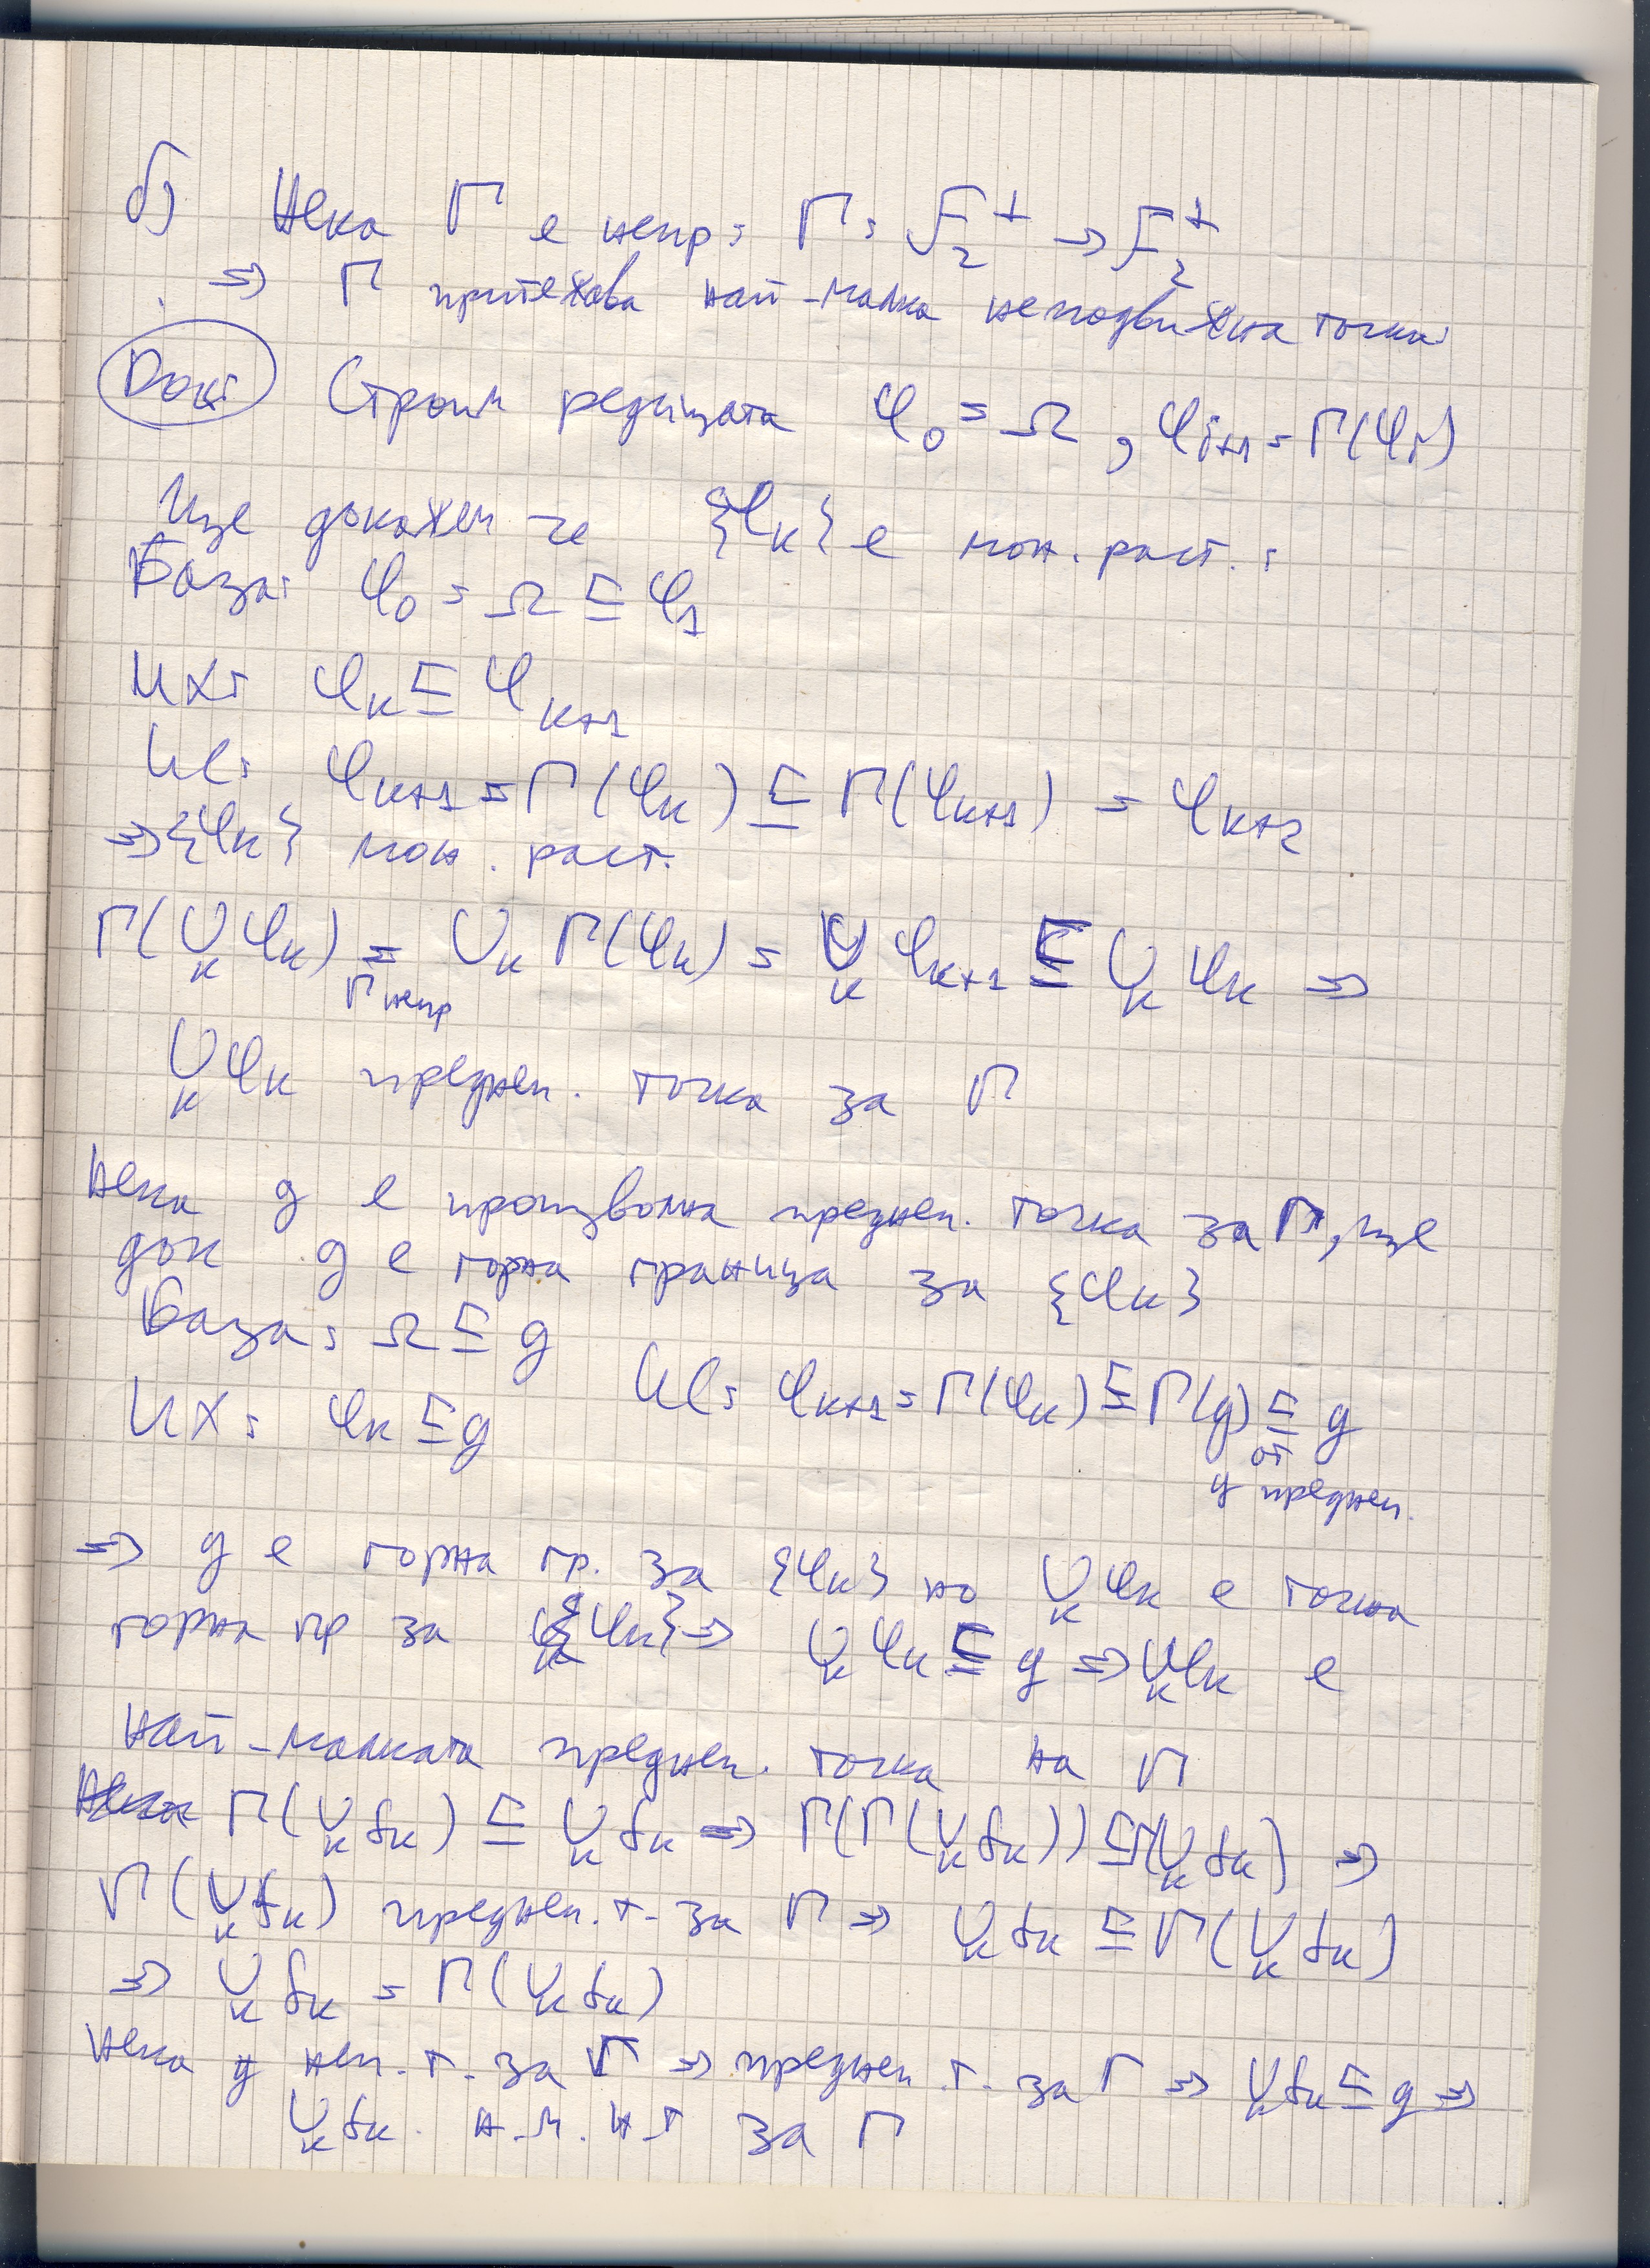 б) Нека Γ е непр: Γ: F₂⁺ → F₂⁺
⇒ Γ притежава най-малка неподвижна точка
Док: Строим редицата φ₀ = Ω, φᵢ₊₁ = Γ(φᵢ)
Ще докажем че {φₖ} е мон. раст.:
База: φ₀ = Ω ⊑ φ₁
ИХ: φₖ ⊑ φₖ₊₁
ИС: φₖ₊₁ = Γ(φₖ) ⊑ Γ(φₖ₊₁) = φₖ₊₂
⇒ {φₖ} мон. раст.
Γ(∪ₖ φₖ) = ∪ₖ Γ(φₖ) = ∪ₖ φₖ₊₁ ⊑ ∪ₖ φₖ ⇒
Γ непр
∪ₖ φₖ преднеп. точка за Γ
Нека g е произволна преднеп. точка за Γ, ще
док g е горна граница за {φₖ}
База: Ω ⊑ g
ИХ: φₖ ⊑ g ИС: φₖ₊₁ = Γ(φₖ) ⊑ Γ(g) ⊑ g
от
g преднеп.
⇒ g е горна гр. за {φₖ} но ∪ₖ φₖ е точна
горна гр за {φₖ} ⇒ ∪ₖ φₖ ⊑ g ⇒ ∪ₖ φₖ е
най-малката преднеп. точка на Γ
Γ(∪ₖ fₖ) ⊑ ∪ₖ fₖ ⇒ Γ(Γ(∪ₖ fₖ)) ⊑ Γ(∪ₖ fₖ) ⇒
Γ(∪ₖ fₖ) преднеп. т. за Γ ⇒ ∪ₖ fₖ ⊑ Γ(∪ₖ fₖ)
⇒ ∪ₖ fₖ = Γ(∪ₖ fₖ)
Нека g неп. т. за Γ ⇒ преднеп. т. за Γ ⇒ ∪ₖ fₖ ⊑ g ⇒
∪ₖ fₖ. н.м.н.т за Γ